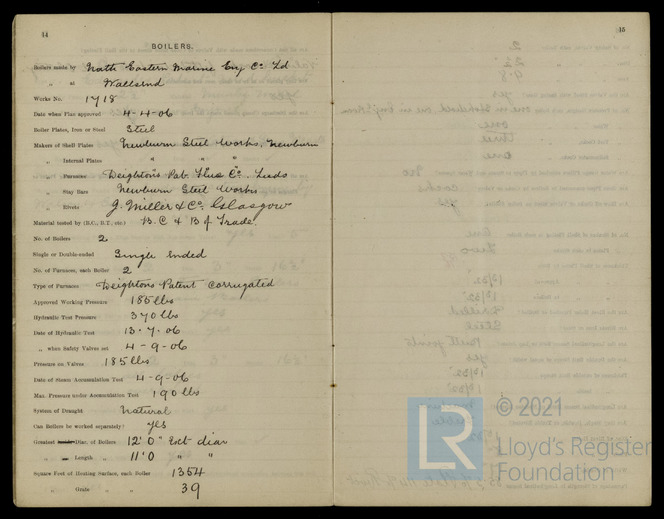 14
BOILERS.
Boilers made by North Eastern Marine Eng Co Ld
" at Wallsend
Works No. 1718
Date when Plan approved 4-4-06
Boiler Plates, Iron or Steel Steel
Makers of Shell Plates Newburn Steel Works, Newburn
" Internal Plates " " "
" Furnaces Deighton's Pat. Flue Co. Leeds
" Stay Bars Newburn Steel Works
" Rivets J. Miller & Co. Glasgow
Material tested by (B.C., B.T., etc.) B.C & B of Trade.
No. of Boilers 2
Single or Double-ended Single Ended
No. of Furnaces, each Boiler 2
Type of Furnaces Deightons Patent Corrugated
Approved Working Pressure 185 lbs
Hydraulic Test Pressure 370 lbs
Date of Hydraulic Test 13-7-06
" when Safety Valves set 4-9-06
Pressure on Valves 185 lbs
Date of Steam Accumulation Test 4-9-06
Max. Pressure under Accumulation Test 190 lbs
System of Draught Natural
Can Boilers be worked separately? yes
Greatest Diar. of Boilers 12' 0" Ext diar
" Length " 11' 0 " "
Square Feet of Heating Surface, each Boiler 1354
" Grate " 39
15
LR
© 2021
Lloyd's Register
Foundation